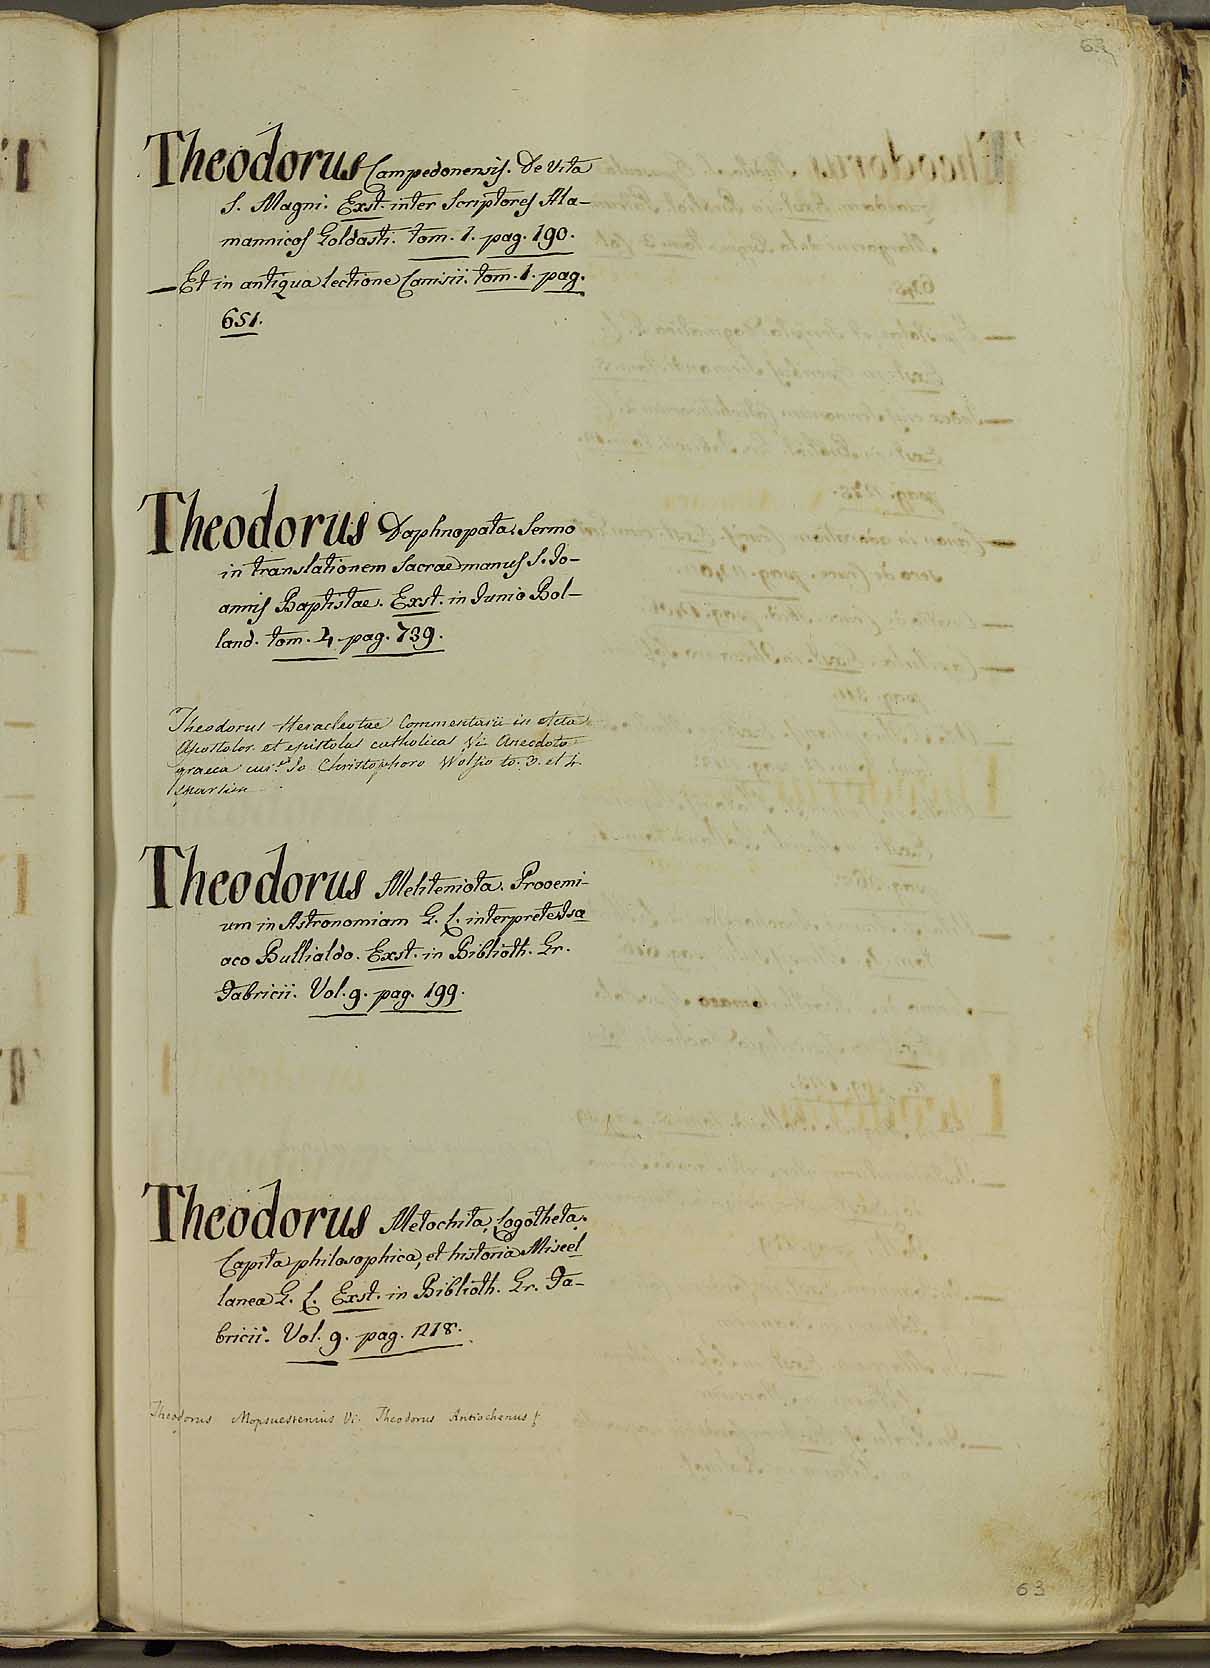 63
Theodorus Campedonensis. De Vita
S. Magni. Exst. inter Scriptores Ala-
mannicos Goldasti. tom. 1. pag. 190.
— Et in antiqua lectione Canisii. tom. 1. pag.
651.
Theodorus Daphnopata. Sermo
in translationem Sacrae manus S. Jo-
annis Baptistae. Exst. in Junio Bol-
land. tom. 4. pag. 739.
Theodorus Heracleotae Commentarii in Acta
Apostolor. et epistolas catholicas Vi. Anecdota
graeca Jo Christophoro Wolfio to. 3. et 4.
Theodorus Meliteniota. Prooemi-
um in Astronomiam G. L. interprete Isa
aco Bullialdo. Exst. in Biblioth. Gr.
Fabricii. Vol. 9. pag. 199.
Theodorus Metochita, Logotheta.
Capita philosophica, et historia Miscel
lanea G. L. Exst. in Biblioth. Gr. Fa-
bricii. Vol. 9. pag. 218.
Theodorus Mopsuestenius Vi. Theodorus Antiochenus
63